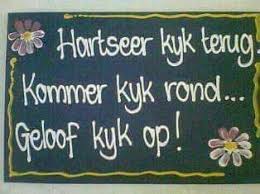 Hartseer kyk terug.
Kommer kyk rond...
Geloof kyk op!